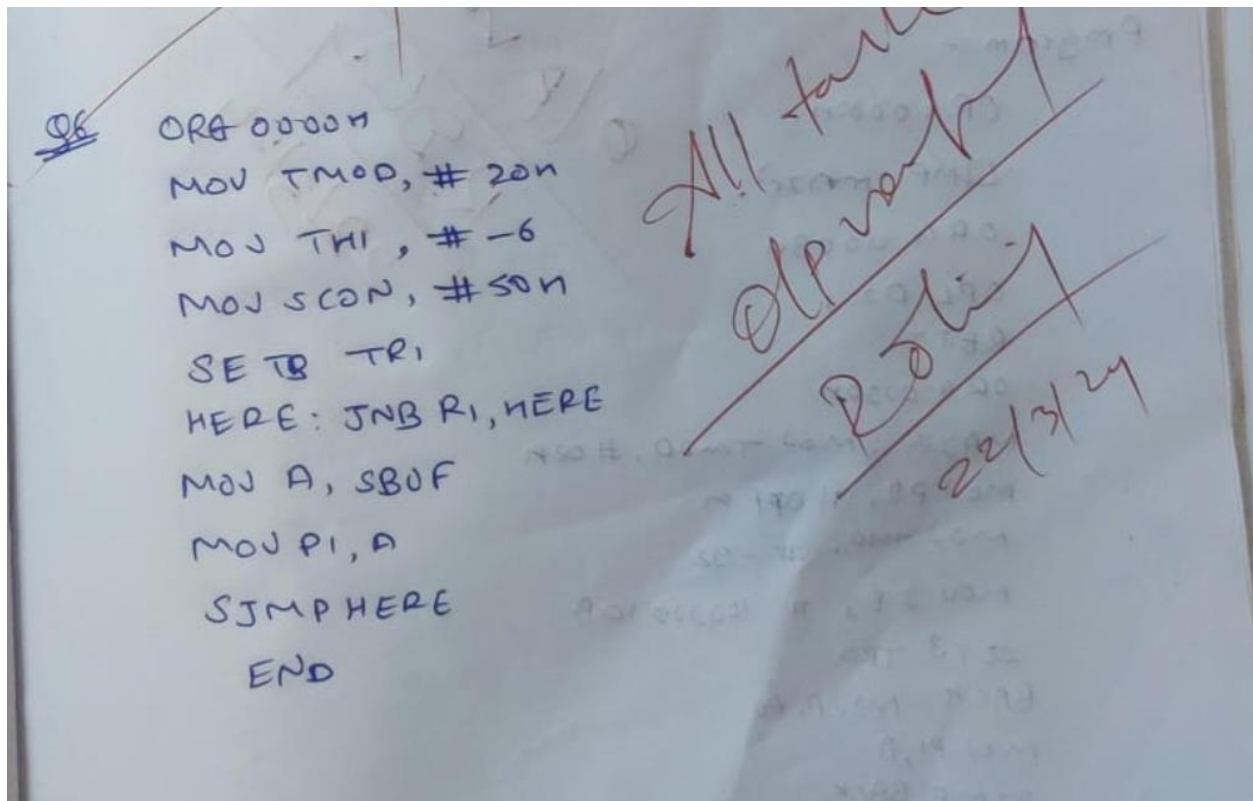 Q6 ORG 0000H
MOV TMOD, # 20H
MOV TH1, # -6
MOV SCON, # 50H
SETB TR1
HERE: JNB R1, HERE
MOV A, SBUF
MOV P1, A
SJMP HERE
END
All
O/P
22/3/24